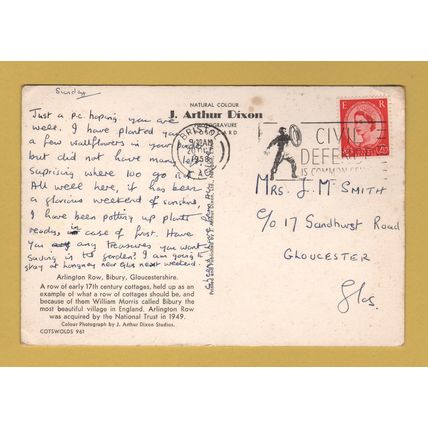 Sunday
NATURAL COLOUR
J. Arthur Dixon
Just a p.c. hoping you are
well. I have planted you
a few wallflowers in your
but did not have many left.
Suprising where 100 go is
All well here, it has been
a glorious weekend of sunshine,
I have been potting up plants
ready, in case of frost. Have
You any treasures you want
Saving in the garden? I am going to
stay at Longney near Glos next weekend.
Arlington Row, Bibury, Gloucestershire.
A row of early 17th century cottages, held up as an
example of what a row of cottages should be, and
because of them William Morris called Bibury the
most beautiful village in England. Arlington Row
was acquired by the National Trust in 1949.
Colour Photograph by J. Arthur Dixon Studios.
COTSWOLDS 961
BRISTOL
1958
CIVIL
DEFENCE
IS COMMON
E R
MRS. J. M. SMITH
C/O 17 Sandhurst Road
GLOUCESTER
Glos.